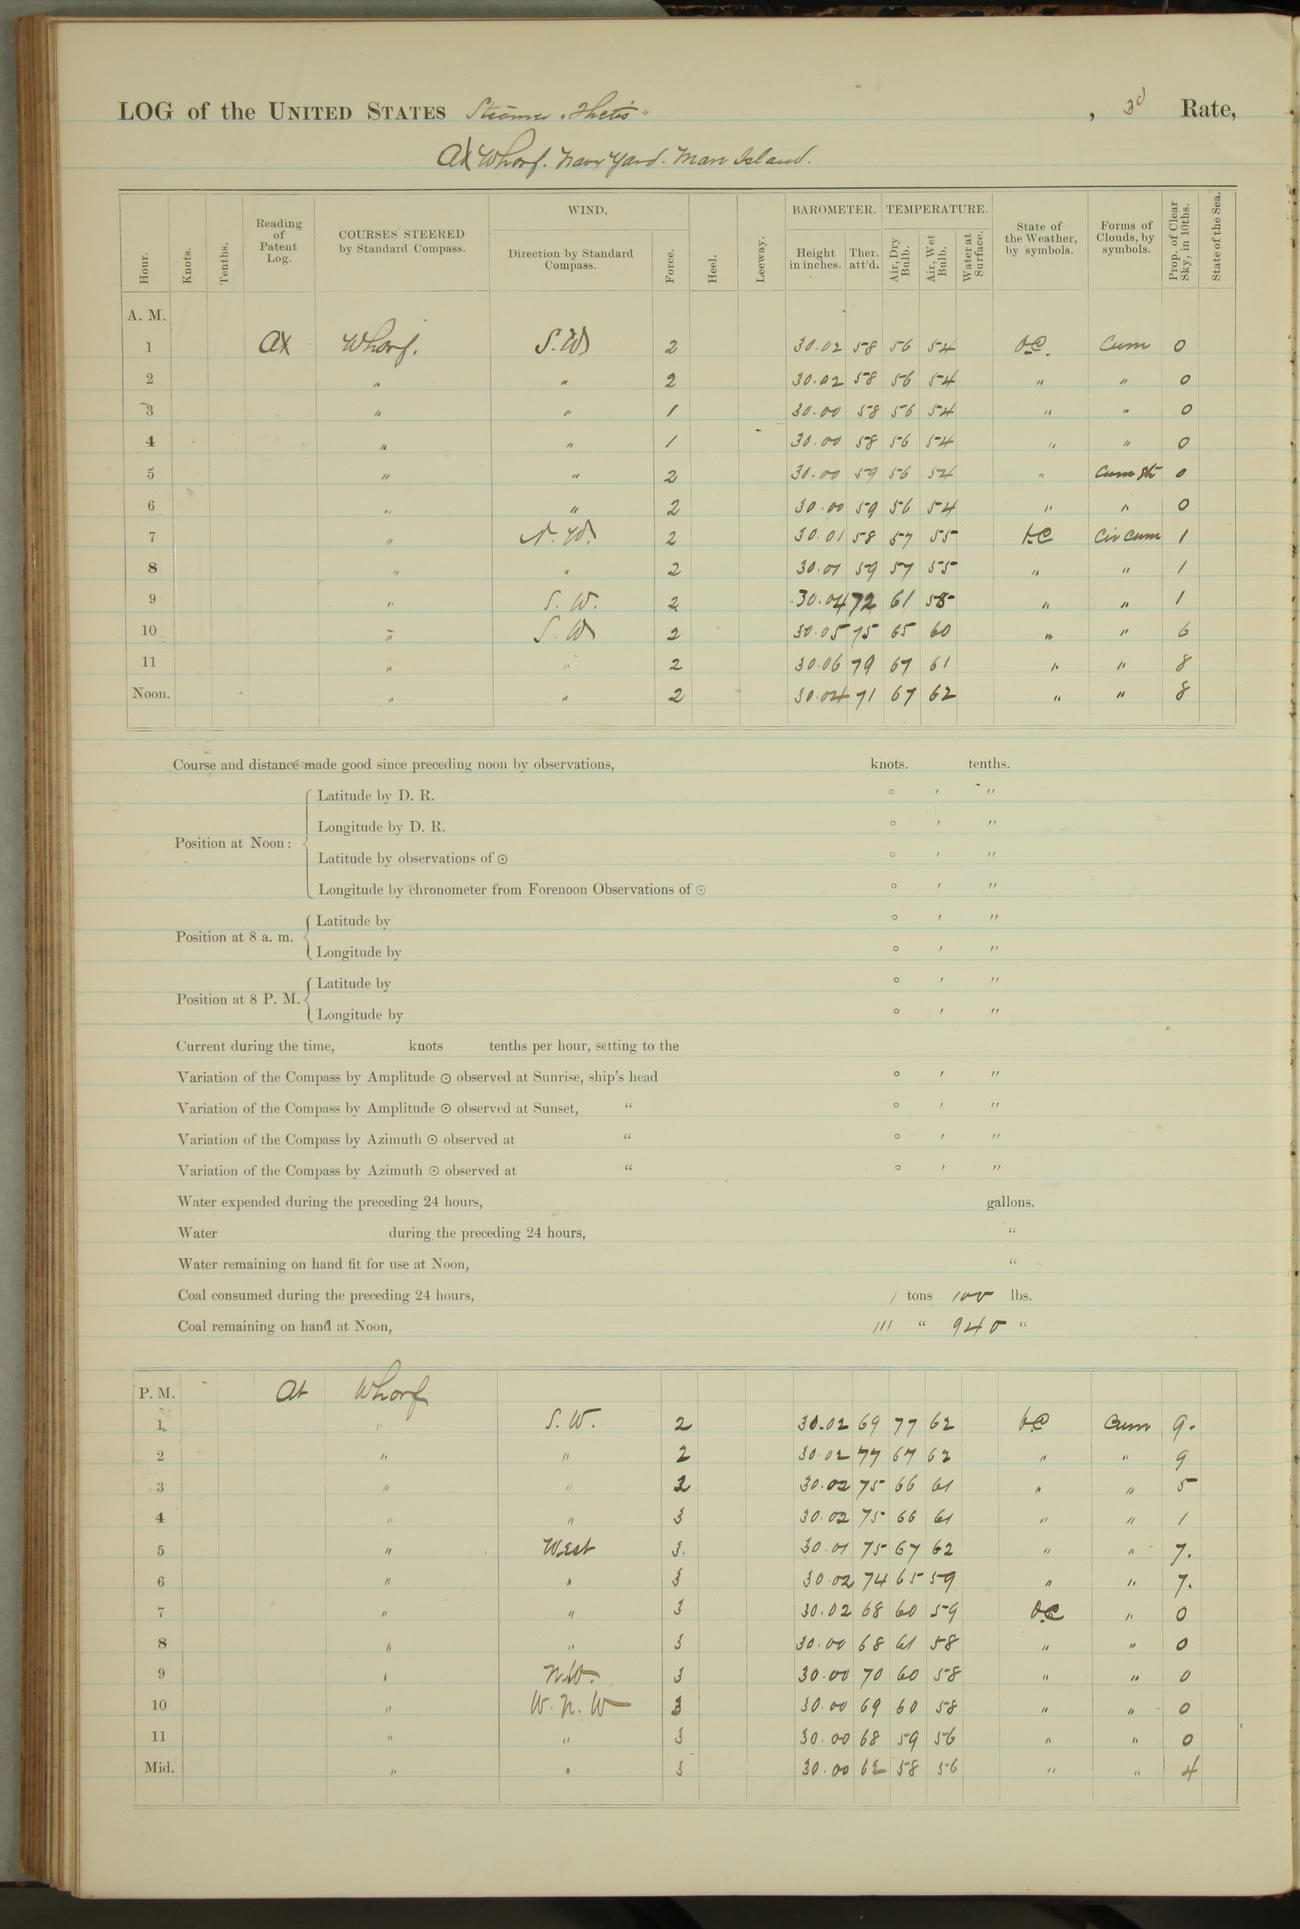 LOG of the UNITED STATES Steamer "Thetis" , 3d Rate,
At Wharf. Navy Yard. Mare Island.
Hour. Knots. Tenths. Reading of Patent Log. COURSES STEERED by Standard Compass. WIND. Direction by Standard Compass. Force. Heel. Leeway. BAROMETER. Height in inches. Ther. att'd. TEMPERATURE. Air, Dry Bulb. Air, Wet Bulb. Water at Surface. State of the Weather, by symbols. Forms of Clouds, by symbols. Prop. of Clear Sky, in 10ths. State of the Sea.
A. M.
1 At Wharf. S.W. 2 30.02 58 56 54 o.c. Cum 0
2 " " 2 30.02 58 56 54 " " 0
3 " " 1 30.00 58 56 54 " " 0
4 " " 1 30.00 58 56 54 " " 0
5 " " 2 30.00 59 56 54 " Cum St 0
6 " " 2 30.00 59 56 54 " " 0
7 " N.W. 2 30.01 58 57 55 b.c Cir Cum 1
8 " " 2 30.01 59 57 55 " " 1
9 " S.W. 2 30.04 72 61 58 " " 1
10 " S.W 2 30.05 75 65 60 " " 6
11 " " 2 30.06 79 67 61 " " 8
Noon. " " 2 30.04 71 67 62 " " 8
Course and distance made good since preceding noon by observations, knots. tenths.
Position at Noon:
Latitude by D. R. ° ′ ″
Longitude by D. R. ° ′ ″
Latitude by observations of ☉ ° ′ ″
Longitude by chronometer from Forenoon Observations of ☉ ° ′ ″
Position at 8 a. m.
Latitude by ° ′ ″
Longitude by ° ′ ″
Position at 8 P. M.
Latitude by ° ′ ″
Longitude by ° ′ ″
Current during the time, knots tenths per hour, setting to the
Variation of the Compass by Amplitude ☉ observed at Sunrise, ship's head ° ′ ″
Variation of the Compass by Amplitude ☉ observed at Sunset, " ° ′ ″
Variation of the Compass by Azimuth ☉ observed at " ° ′ ″
Variation of the Compass by Azimuth ☉ observed at " ° ′ ″
Water expended during the preceding 24 hours, gallons.
Water during the preceding 24 hours, "
Water remaining on hand fit for use at Noon, "
Coal consumed during the preceding 24 hours, 1 tons 100 lbs.
Coal remaining on hand at Noon, 111 " 940 "
P. M. At Wharf
1 " S.W. 2 30.02 69 77 62 b.c Cum 9.
2 " " 2 30.02 77 67 62 " " 9
3 " " 2 30.02 75 66 61 " " 5
4 " " 3 30.02 75 66 61 " " 1
5 " West 3. 30.01 75 67 62 " " 7.
6 " " 3 30.02 74 65 59 " " 7.
7 " " 3 30.02 68 60 59 o.c " 0
8 " " 3 30.00 68 61 58 " " 0
9 " N.W. 3 30.00 70 60 58 " " 0
10 " W.N.W 3 30.00 69 60 58 " " 0
11 " " 3 30.00 68 59 56 " " 0
Mid. " " 3 30.00 62 58 56 " " 4